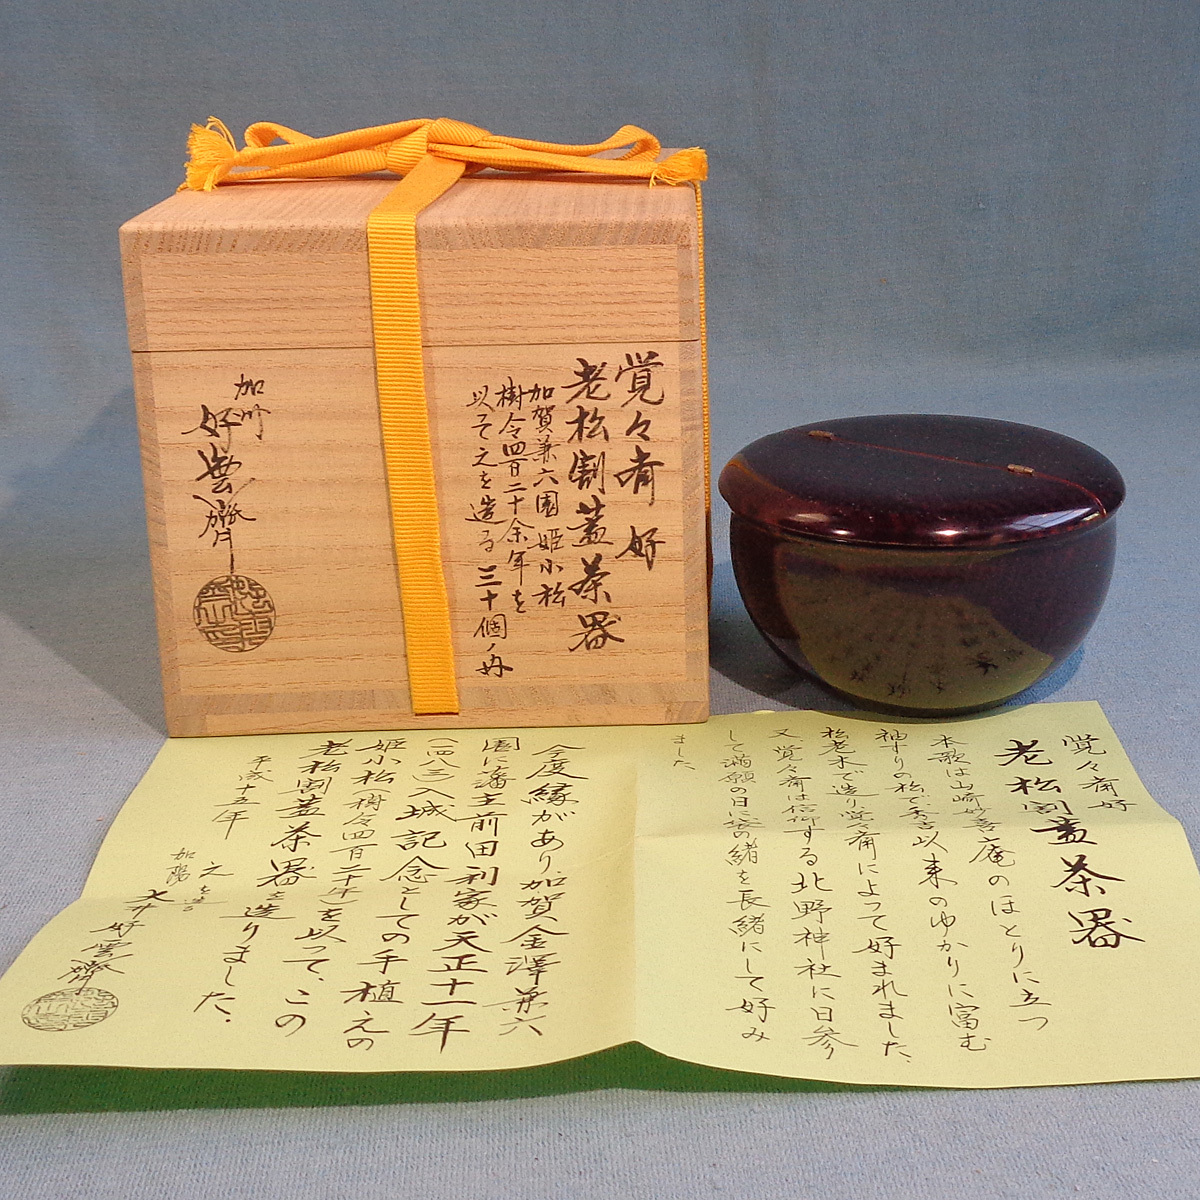 覚々斎 好
老松割蓋茶器
加賀兼六園姫小松
樹令四百二十余年を
以て之を造る 三十個ノ内
加州
好雲齊
覚々斎好
老松割蓋茶器
本歌は山崎妙喜庵のほとりに立つ
袖すりの松で、秀吉以来のゆかりに富む
松老木で造り覚々斎によって好まれました、
又覚々斎は信仰する北野神社に日参
して満願の日に袋の緒を長緒にして好み
ました、
今度縁があり、加賀金澤兼六
園に藩主前田利家が天正十一年
(一四八三)入城記念としての手植えの
姫小松(樹令四百二十年)を以って、この
老松割蓋茶器を造りました、
平成十五年
之を造る
加陽
大下好雲齊